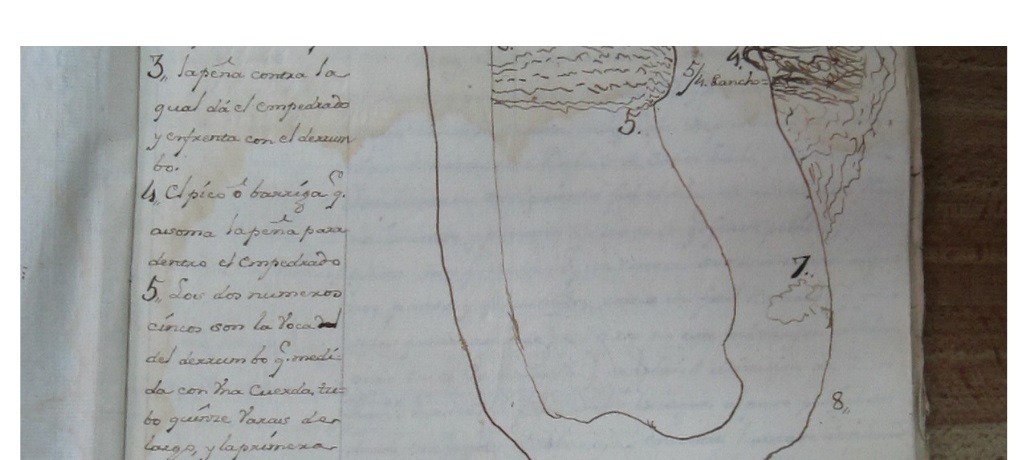 3,, la peña contra la
qual dá el empedrado
y enfrenta con el derrum
bo.
4,, El pico ô barriga q.
asoma la peña para
dentro el empedrado
5,, Los dos numeros
cincos son la Voca
del derrumbo q. medi-
da con Vna Cuerda, tu=
bo quinze Varas de
largo, y la primera
5.
5/4. Rancho=
4.
7.
8,,